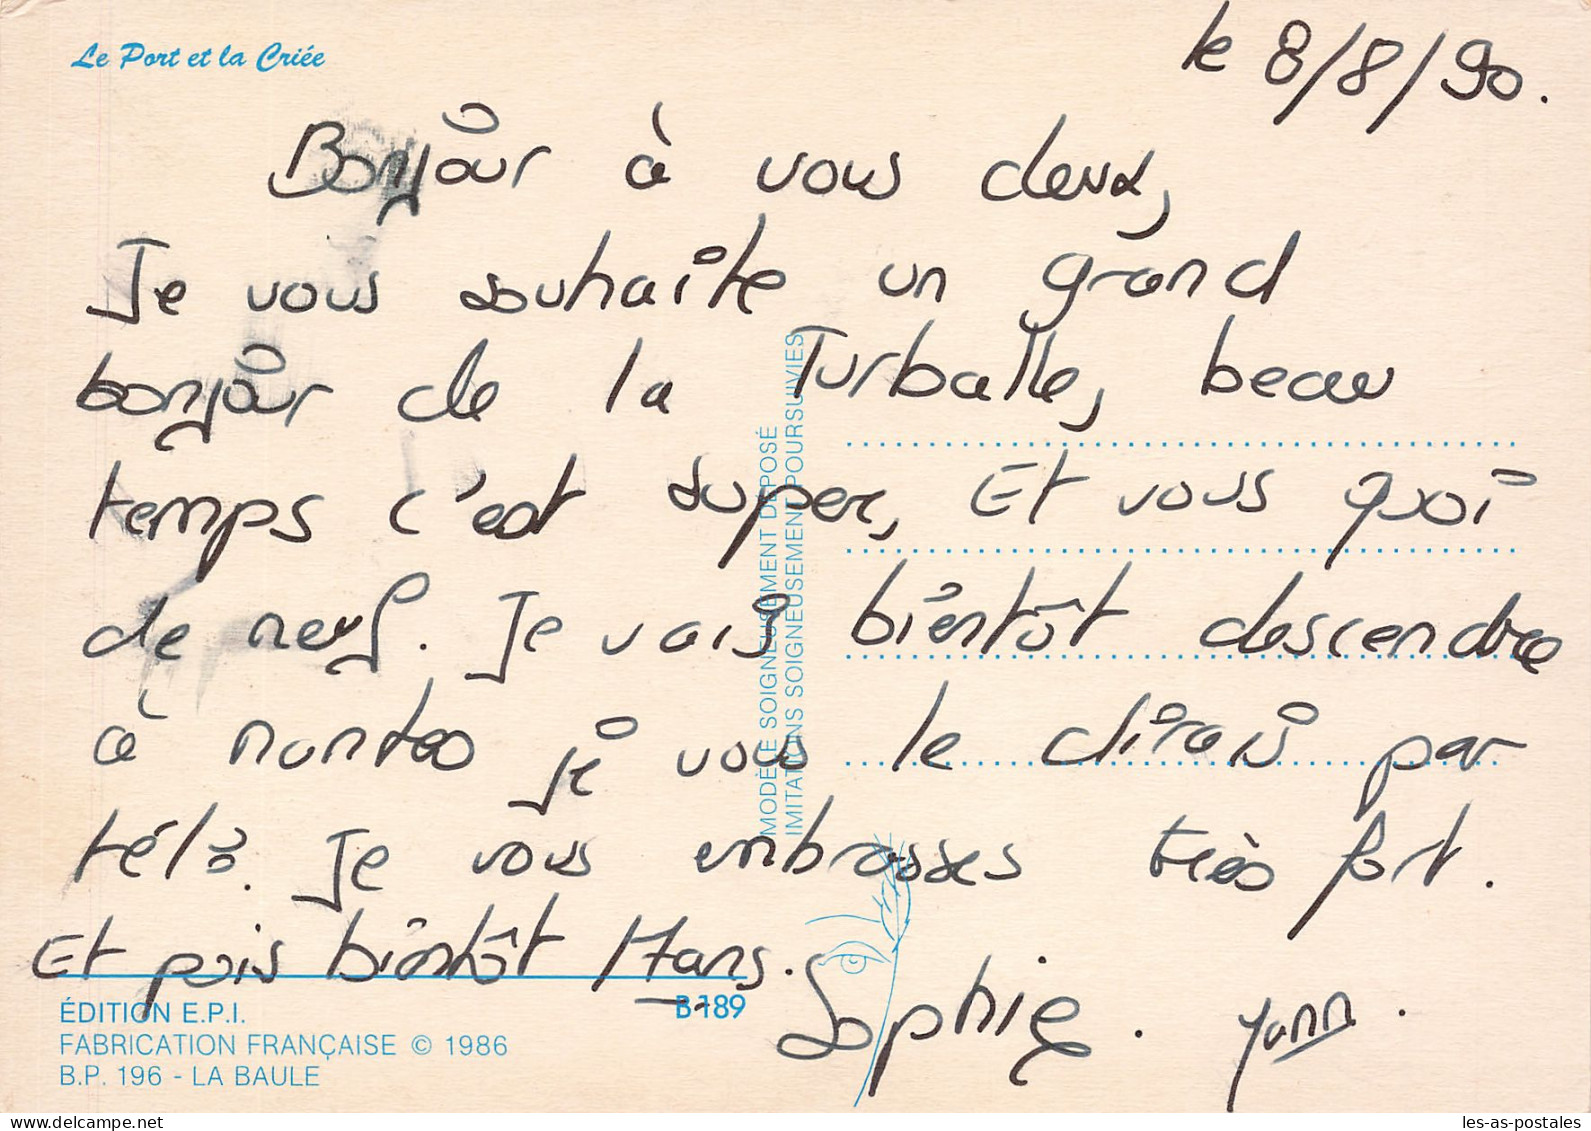 Le Port et la Criée
le 8/8/90.
Bonjour à vous deux,
Je vous souhaite un grand
bonjour de la Turballe, beau
temps c'est super, Et vous quoi
de neuf. Je vais bientôt descendre
à nantes je vous le dirais par
tél. Je vous embrasses très fort.
Et puis bientôt 17ans.
Sophie. Yann.
MODÈLE SOIGNEUSEMENT DÉPOSÉ
IMITATIONS SOIGNEUSEMENT POURSUIVIES
B-189
ÉDITION E.P.I.
FABRICATION FRANÇAISE © 1986
B.P. 196 - LA BAULE
les-as-postales